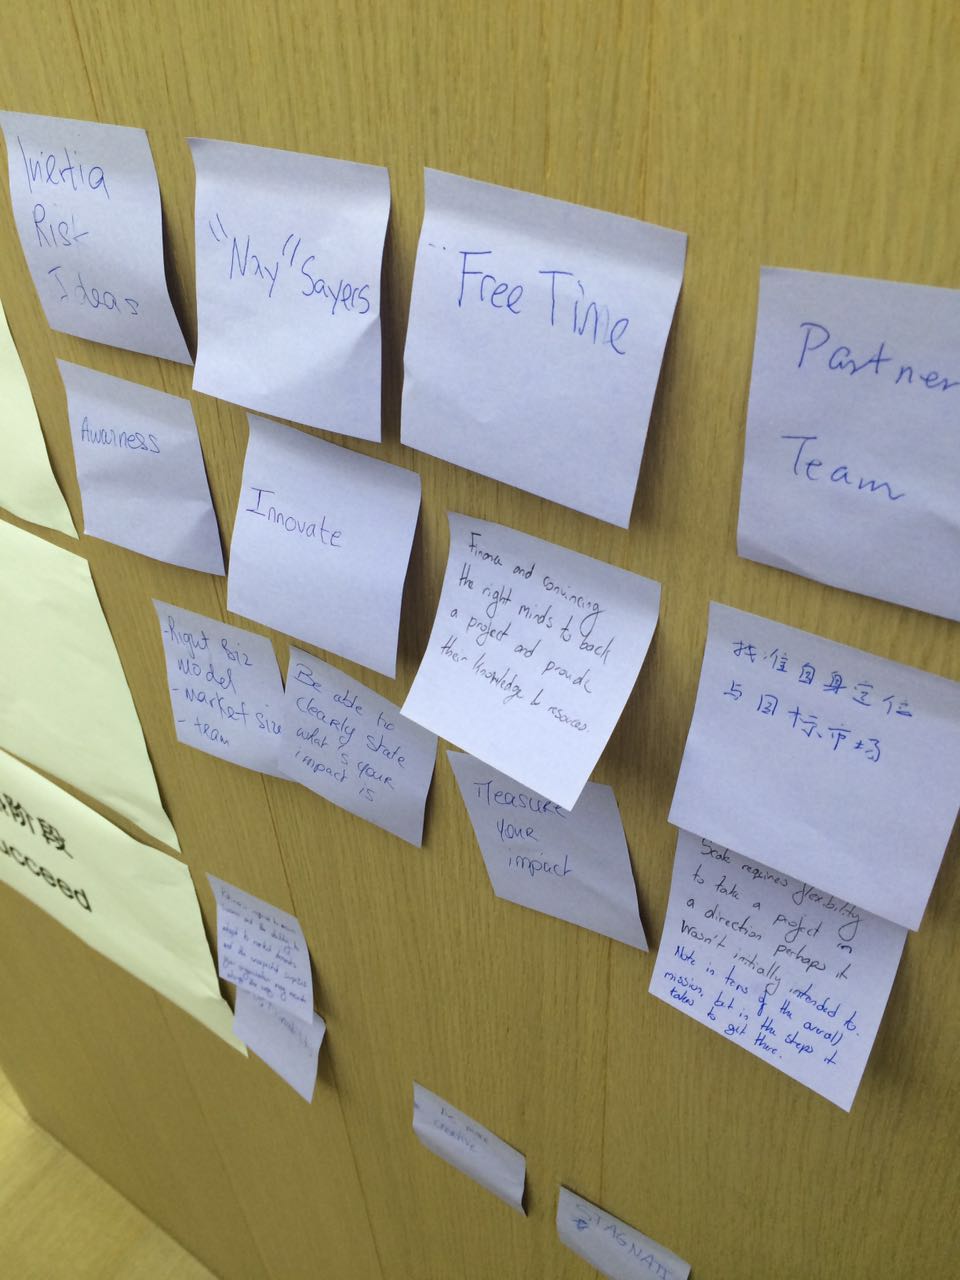 Inertia
Risk
Ideas
"Nay" Sayers
Free Time
Partner
Team
Awarness
Innovate
Finance and convincing
the right minds to back
a project and provide
their knowledge & resources.
找准自身定位
与目标市场
-Right Biz
Model
-Market size
- team
Be able to
clearly state
what's your
impact is
Measure
your
impact
Scale requires flexibility
to take a project in
a direction perhaps it
wasn't initially intended to.
Note in terms of the overall
mission, but in the steps it
takes to get there.
阶段
ucceed
creative
STAGNATI